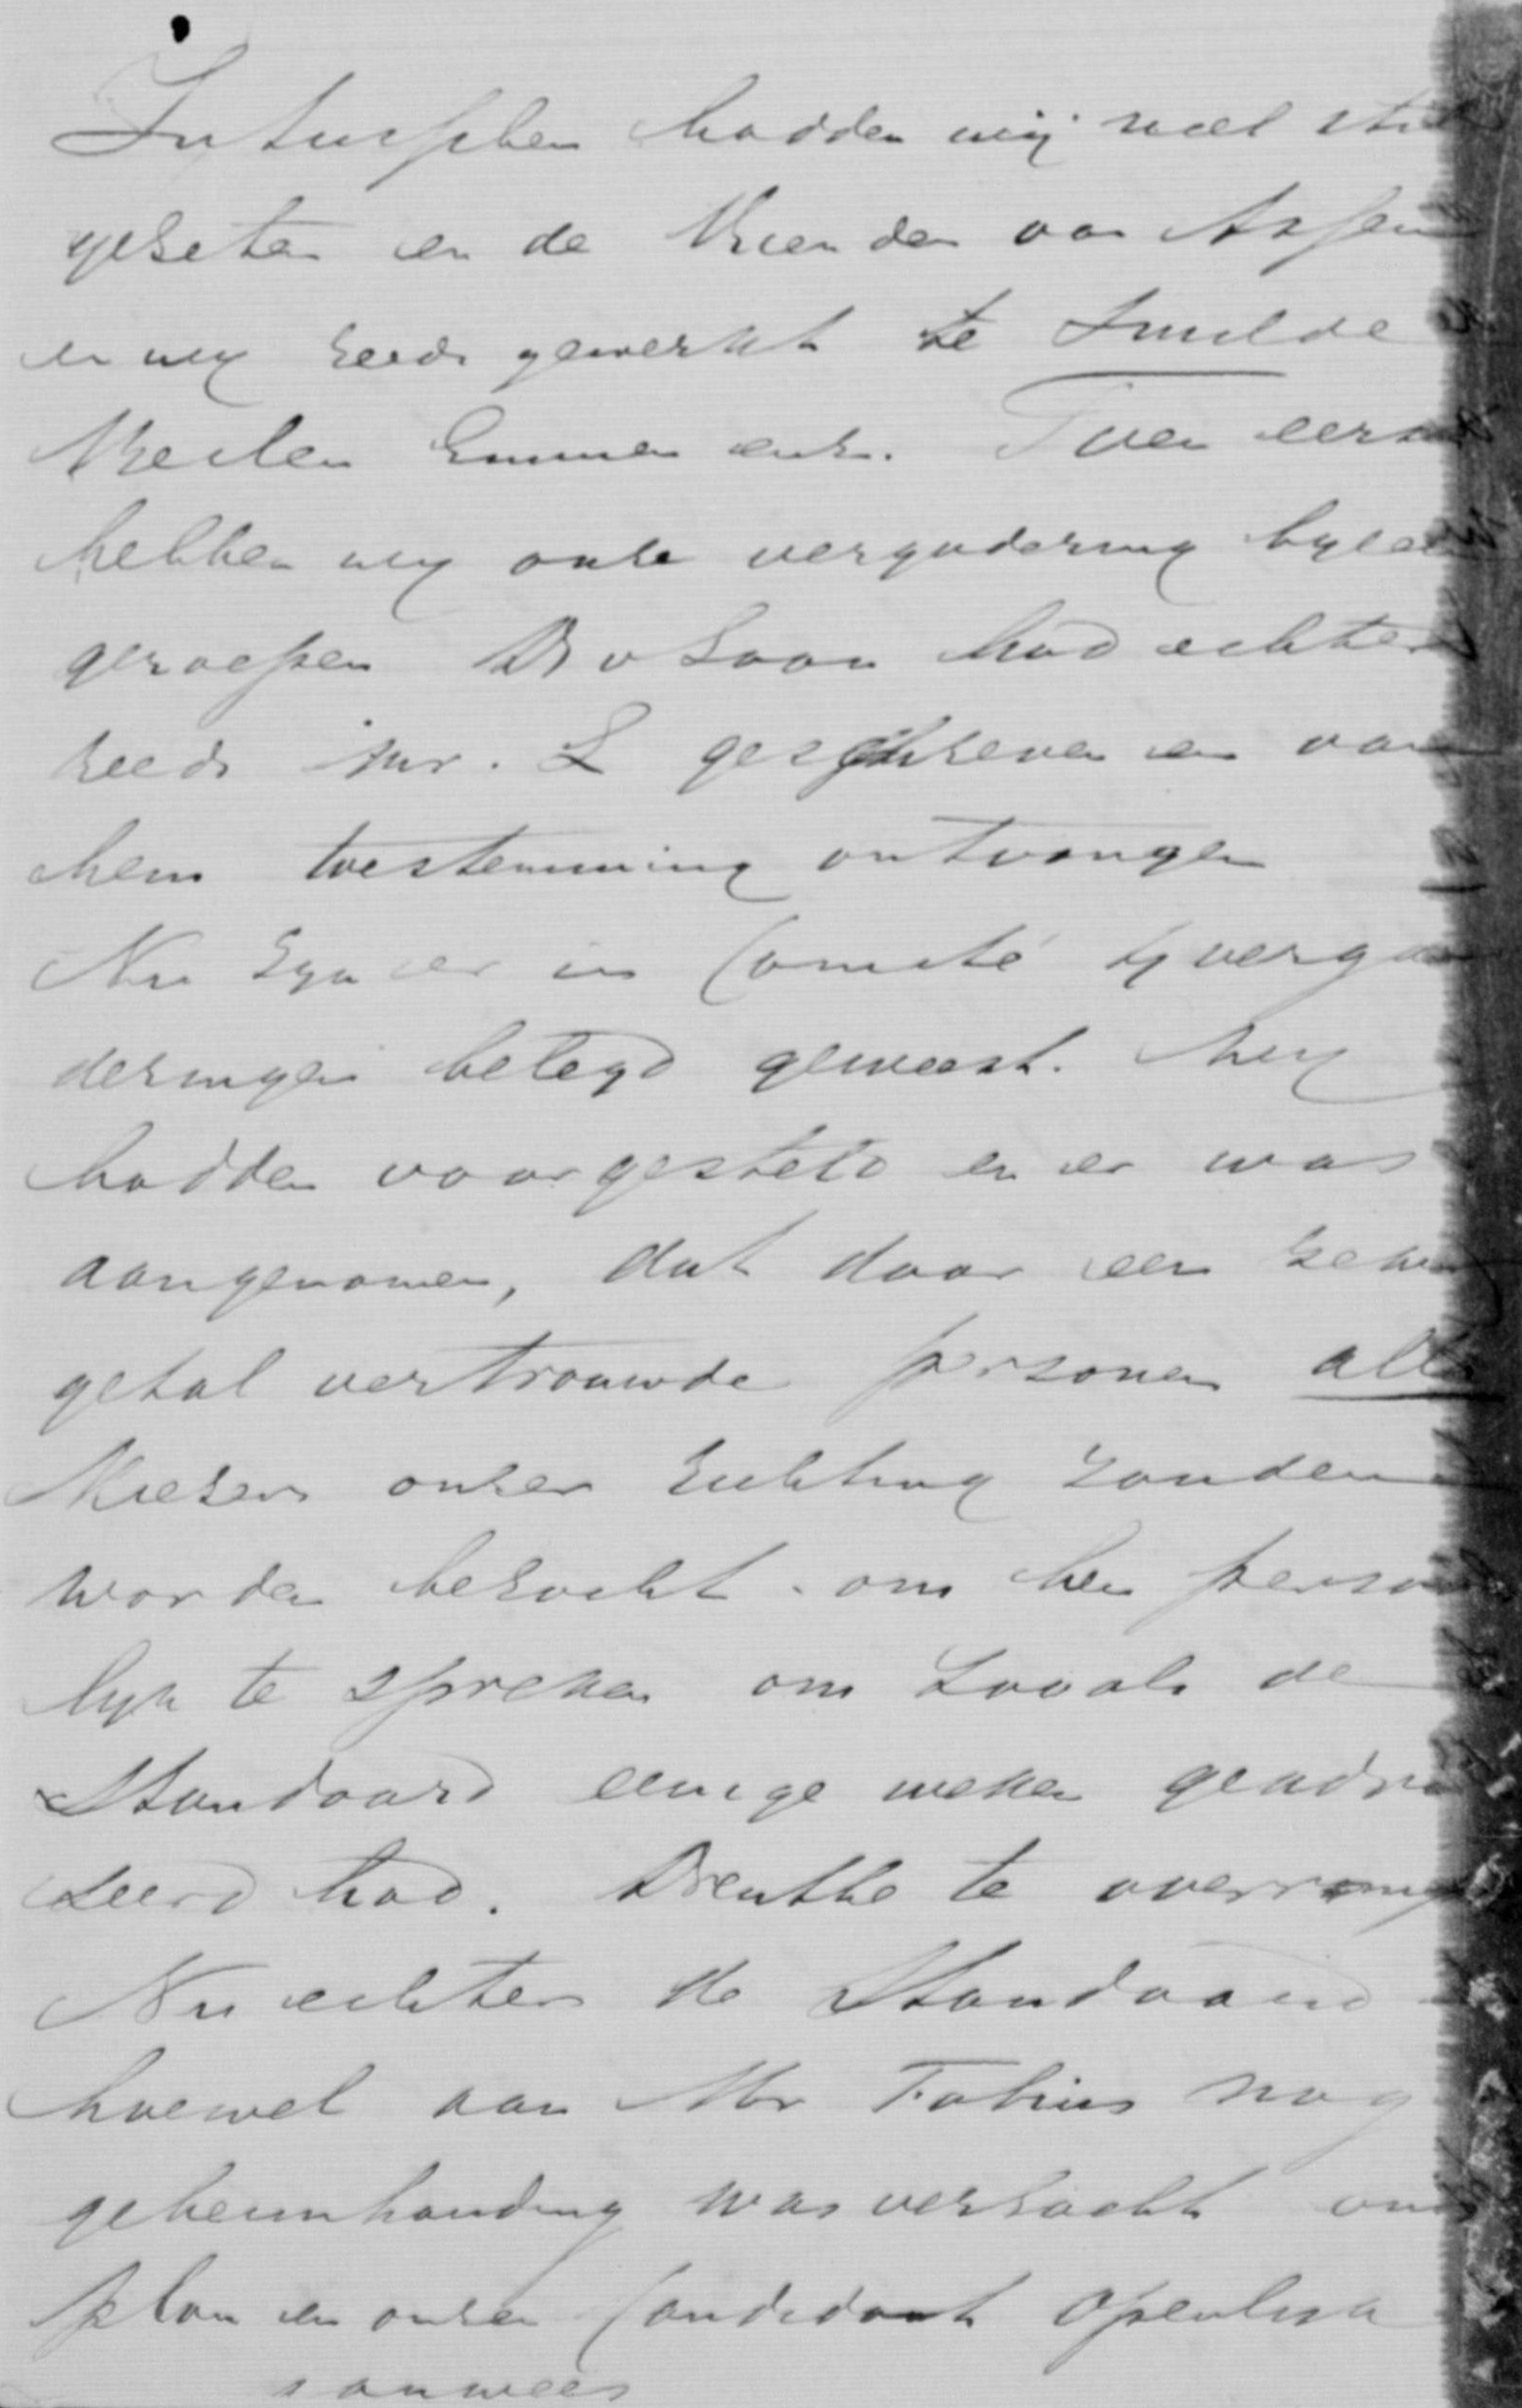 Intusschen hadden wij niet stil
gezeten en de vrienden van Assen
en wij reeds gewerkt te Smilde
Beilen Emmen enz. Toen eerst
hebben wij onze vergadering byeen
geroepen Ds v Loon had echter
reeds Mr. L geschreven en van
hem toestemming ontvangen
Nu zyn er in Comité 4 verga
deringen belegd geweest. Wij
hadden voorgesteld en er was
aangenomen, dat door een zeker
getal vertrouwde personen alle
kiezers onzer richting zouden
worden bezocht om hen persoon
lyk te spreken om zooals de
Standaard eenige weken geadvi
seerd had. Drenthe te overrompe
Nu echter de Standaard
hoewel aan Mr Fabius nog
geheimhouding was verzocht ons
plan en onzen Candidaat openlyk
aanwees